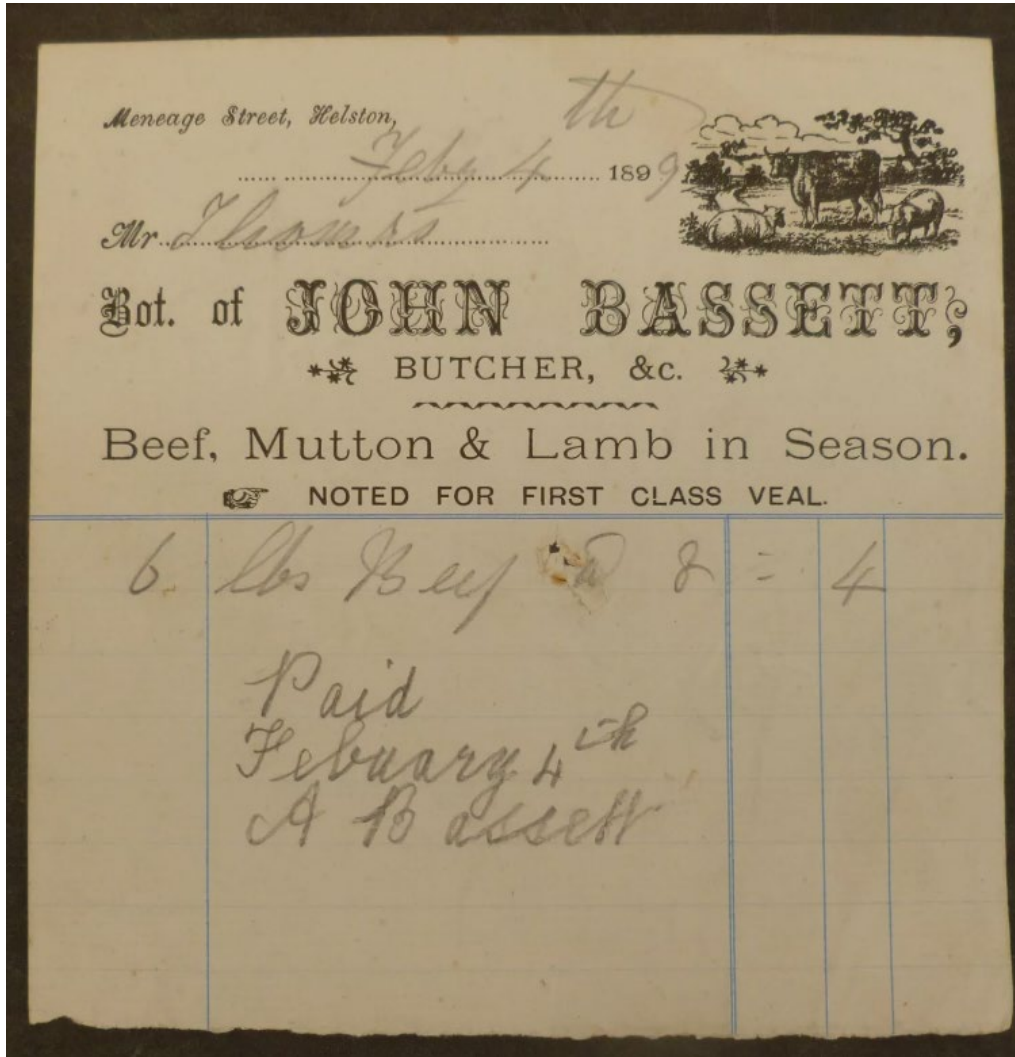 Meneage Street, Helston,
Feby 4th 1899
Mr. Thomas
Bot. of JOHN BASSETT,
BUTCHER, &c.
Beef, Mutton & Lamb in Season.
NOTED FOR FIRST CLASS VEAL.
6 lbs Beef @ 8 = 4
Paid
Febuary 4th
A Bassett